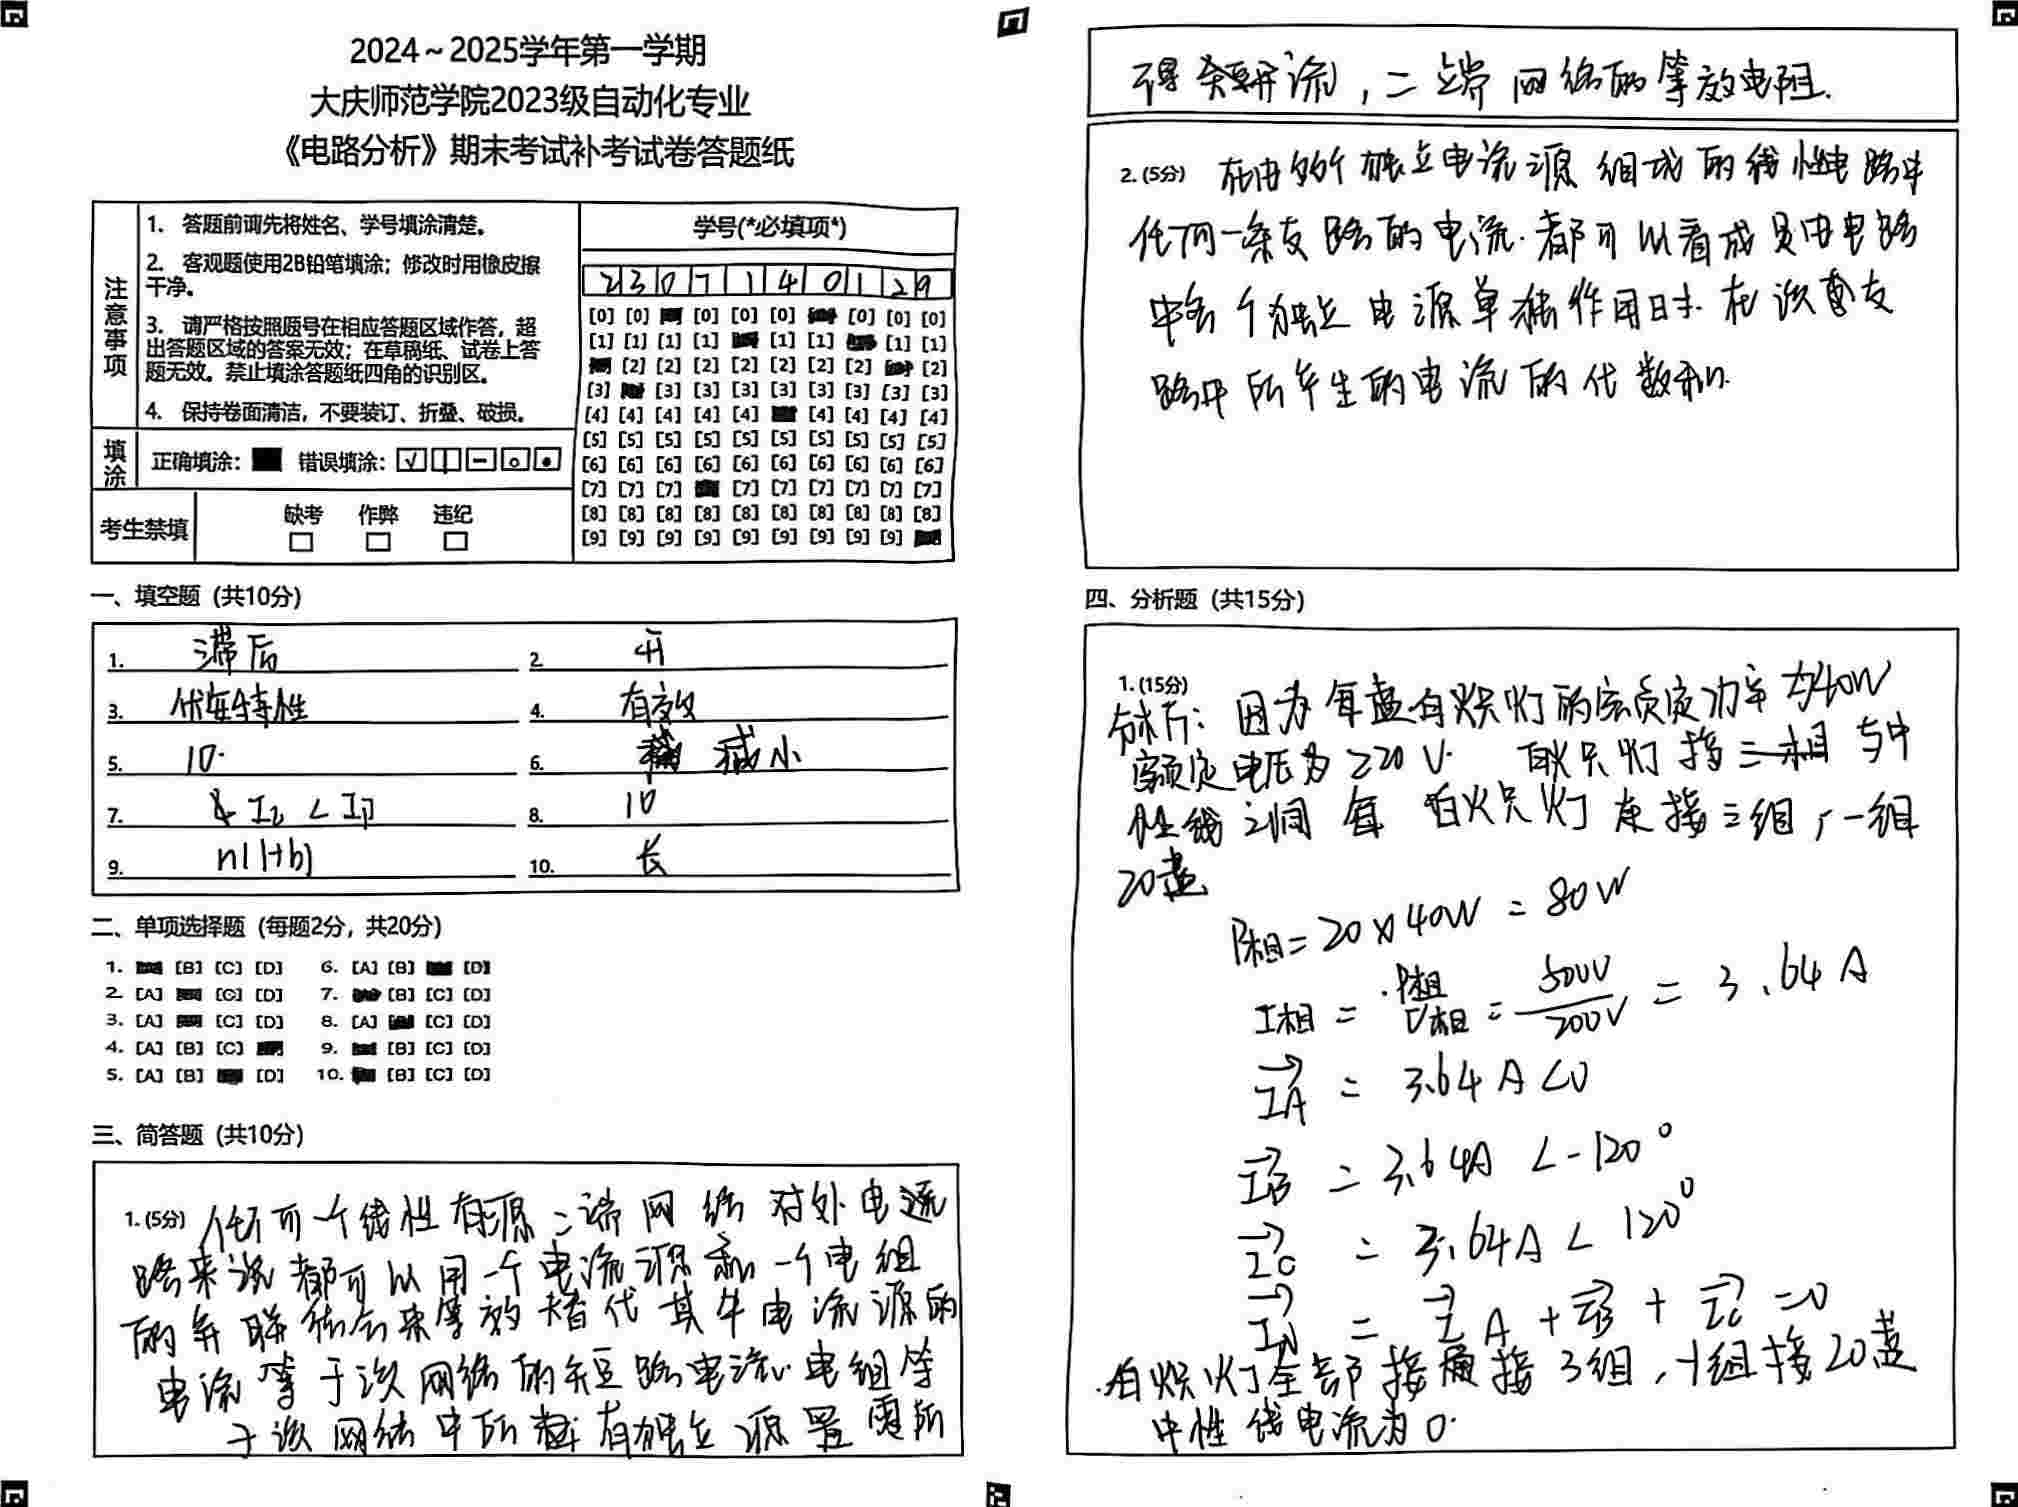 2024～2025学年第一学期
大庆师范学院2023级自动化专业
《电路分析》期末考试补考试卷答题纸
注意事项
1. 答题前请先将姓名、学号填涂清楚。
2. 客观题使用2B铅笔填涂；修改时用橡皮擦
干净。
3. 请严格按照题号在相应答题区域作答，超
出答题区域的答案无效；在草稿纸、试卷上答
题无效。禁止填涂答题纸四角的识别区。
4. 保持卷面清洁，不要装订、折叠、破损。
填涂
正确填涂： 错误填涂：
考生禁填
缺考 作弊 违纪
学号(*必填项*)
2 3 0 7 1 4 0 1 2 9
[0] [0] [0] [0] [0] [0] [0] [0]
[1] [1] [1] [1] [1] [1] [1] [1]
[2] [2] [2] [2] [2] [2] [2] [2]
[3] [3] [3] [3] [3] [3] [3] [3] [3]
[4] [4] [4] [4] [4] [4] [4] [4] [4]
[5] [5] [5] [5] [5] [5] [5] [5] [5] [5]
[6] [6] [6] [6] [6] [6] [6] [6] [6] [6]
[7] [7] [7] [7] [7] [7] [7] [7] [7]
[8] [8] [8] [8] [8] [8] [8] [8] [8] [8]
[9] [9] [9] [9] [9] [9] [9] [9] [9]
一、填空题 (共10分)
1. 滞后 2. 开
3. 伏安特性 4. 有效
5. 10. 6. 减小
7. I2 < I1 8. 10
9. n(1+b) 10. 长
二、单项选择题 (每题2分，共20分)
1. [B] [C] [D] 6. [A] [B] [D]
2. [A] [C] [D] 7. [B] [C] [D]
3. [A] [C] [D] 8. [A] [C] [D]
4. [A] [B] [C] 9. [B] [C] [D]
5. [A] [B] [D] 10. [B] [C] [D]
三、简答题 (共10分)
1. (5分) 任何一个线性有源二端网络对外电
路来说都可以用一个电流源和一个电组
的并联结合来等效替代其中电流源的
电流等于该网络的短路电流电组等
于该网络中所有独立源置零所
得 ，二端网络的等效电阻.
2. (5分) 在由 个独立电流源组成的线性电路中
任何一条支路的电流.都可以看成是由电路
中各个独立电源单独作用时.在该支
路中所产生的电流的代数和.
四、分析题 (共15分)
1. (15分)
分析：因为每盏白炽灯的额定功率为40W
额定电压为220V. 白炽灯接 与中
性线之间每 白炽灯 接三组，一组
20盏
P相=20×40W=80W
I相=P相/U相=500V/200V=3.64A
IA = 3.64A∠0
IB = 3.64A∠-120°
IC = 3.64A∠120°
IN = IA+IB+IC=0
白炽灯全部接通接3组，1组接20盏
中性线电流为0.